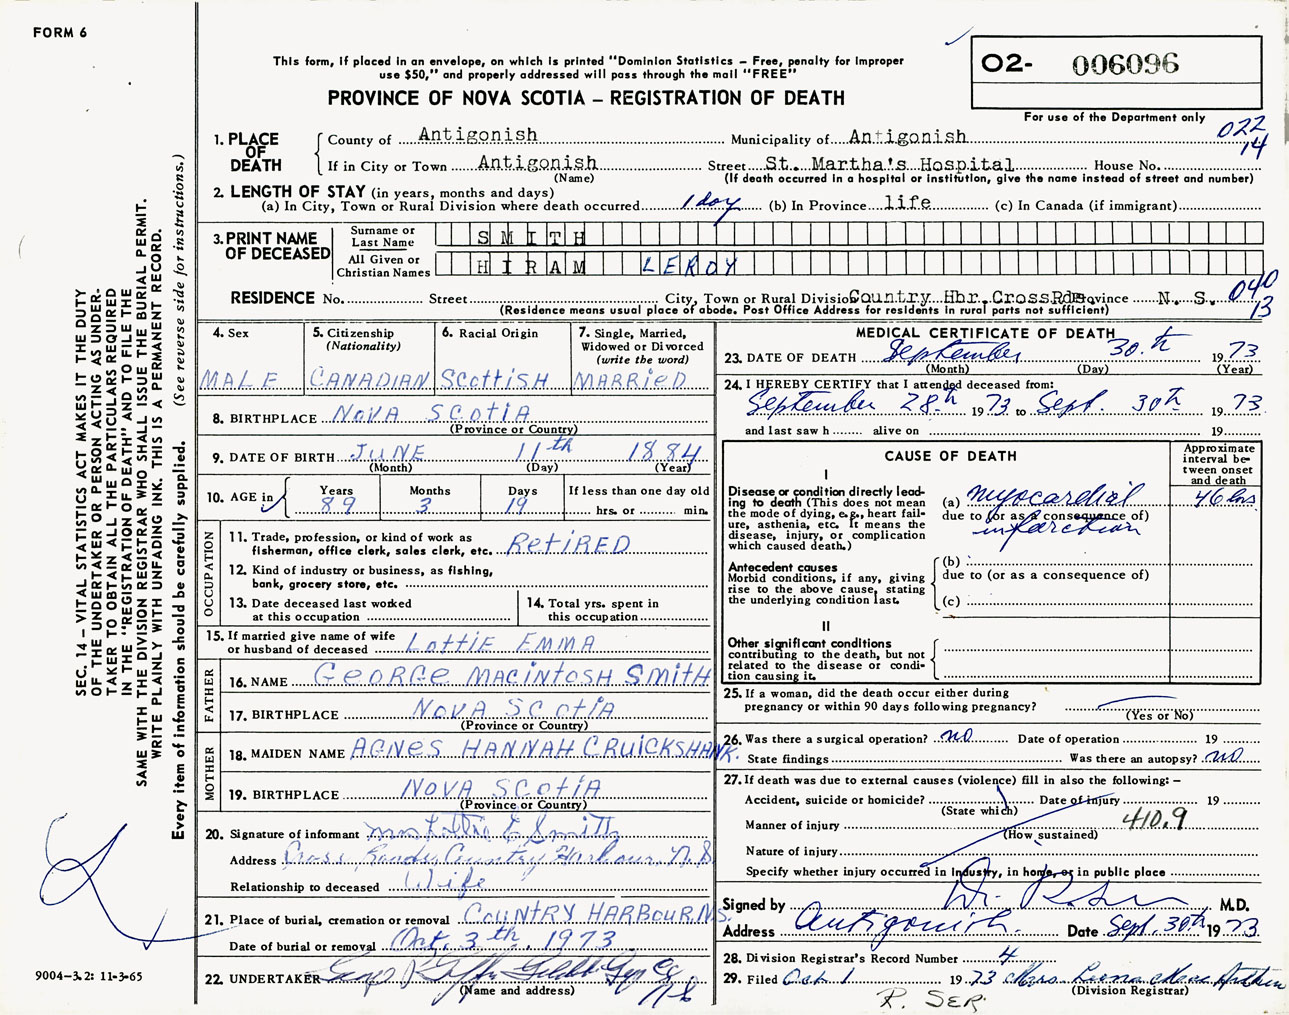 FORM 6
This form, if placed in an envelope, on which is printed "Dominion Statistics – Free, penalty for improper
use $50," and properly addressed will pass through the mail "FREE"
PROVINCE OF NOVA SCOTIA – REGISTRATION OF DEATH
02- 006096
For use of the Department only
022
14
1. PLACE OF DEATH
County of Antigonish Municipality of Antigonish
If in City or Town Antigonish Street St. Martha's Hospital House No.
(Name) (If death occurred in a hospital or institution, give the name instead of street and number)
2. LENGTH OF STAY (in years, months and days)
(a) In City, Town or Rural Division where death occurred 1 day (b) In Province life (c) In Canada (if immigrant)
3. PRINT NAME OF DECEASED
Surname or Last Name SMITH
All Given or Christian Names HIRAM LEROY
RESIDENCE No. Street City, Town or Rural Division Country Hbr. CrossRds Province N. S.
(Residence means usual place of abode. Post Office Address for residents in rural parts not sufficient)
040
13
4. Sex
MALE
5. Citizenship
(Nationality)
CANADIAN
6. Racial Origin
Scottish
7. Single, Married,
Widowed or Divorced
(write the word)
MARRIED
8. BIRTHPLACE NOVA SCOTIA
(Province or Country)
9. DATE OF BIRTH JUNE 11th 1884
(Month) (Day) (Year)
10. AGE in
Years 89
Months 3
Days 19
If less than one day old
hrs. or min.
OCCUPATION
11. Trade, profession, or kind of work as
fisherman, office clerk, sales clerk, etc. RETIRED
12. Kind of industry or business, as fishing,
bank, grocery store, etc.
13. Date deceased last worked
at this occupation
14. Total yrs. spent in
this occupation
15. If married give name of wife
or husband of deceased LOTTIE EMMA
FATHER
16. NAME GEORGE MACINTOSH SMITH
17. BIRTHPLACE NOVA SCOTIA
(Province or Country)
MOTHER
18. MAIDEN NAME AGNES HANNAH CRUICKSHANK.
19. BIRTHPLACE NOVA SCOTIA
(Province or Country)
20. Signature of informant Mrs Lottie E Smith
Address Cross Roads Country Harbour N.S
Relationship to deceased Wife
21. Place of burial, cremation or removal COUNTRY HARBOUR N.S.
Date of burial or removal Oct. 3th, 1973
22. UNDERTAKER
(Name and address)
N S
MEDICAL CERTIFICATE OF DEATH
23. DATE OF DEATH September 30th 1973
(Month) (Day) (Year)
24. I HEREBY CERTIFY that I attended deceased from:
September 28th 1973 to Sept. 30th 1973
and last saw h alive on 19
CAUSE OF DEATH
Approximate
interval be-
tween onset
and death
I
Disease or condition directly lead-
ing to death (This does not mean
the mode of dying, e.g., heart fail-
ure, asthenia, etc. It means the
disease, injury, or complication
which caused death.)
(a) myocardial 46 hrs
due to (or as a consequence of)
infarction
Antecedent causes
Morbid conditions, if any, giving
rise to the above cause, stating
the underlying condition last.
(b)
due to (or as a consequence of)
(c)
II
Other significant conditions
contributing to the death, but not
related to the disease or condi-
tion causing it.
25. If a woman, did the death occur either during
pregnancy or within 90 days following pregnancy?
(Yes or No)
26. Was there a surgical operation? no Date of operation 19
State findings Was there an autopsy? no
27. If death was due to external causes (violence) fill in also the following: –
Accident, suicide or homicide? Date of injury 19
(State which)
Manner of injury 410.9
(How sustained)
Nature of injury
Specify whether injury occurred in Industry, in home, or in public place
Signed by Dr. M.D.
Address Antigonish. Date Sept. 30th 1973
28. Division Registrar's Record Number 4
29. Filed Oct 1 1973 Mrs.
(Division Registrar)
R. SER.
SEC. 14 – VITAL STATISTICS ACT MAKES IT THE DUTY
OF THE UNDERTAKER OR PERSON ACTING AS UNDER-
TAKER TO OBTAIN ALL THE PARTICULARS REQUIRED
IN THE "REGISTRATION OF DEATH" AND TO FILE THE
SAME WITH THE DIVISION REGISTRAR WHO SHALL ISSUE THE BURIAL PERMIT.
WRITE PLAINLY WITH UNFADING INK. THIS IS A PERMANENT RECORD.
Every item of information should be carefully supplied. (See reverse side for instructions.)
9004-3.2: 11-3-65